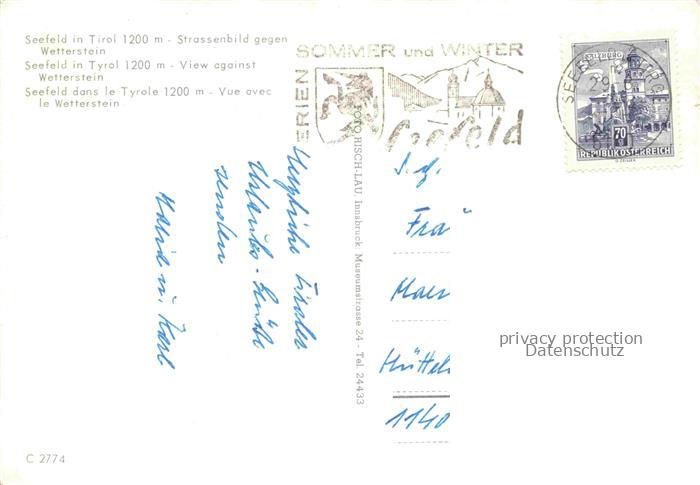 Seefeld in Tirol 1200 m - Strassenbild gegen
Wetterstein
Seefeld in Tyrol 1200 m - View against
Wetterstein
Seefeld dans le Tyrole 1200 m - Vue avec
le Wetterstein
SOMMER und WINTER
FERIEN
Seefeld
SALZBURG
70
REPUBLIK ÖSTERREICH
FOTO RISCH-LAU, Innsbruck, Museumstrasse 24 - Tel. 24433
Herzliche
Urlaubs-Grüße
senden
Maria u. Karl
Frau
1140
privacy protection
Datenschutz
C 2774